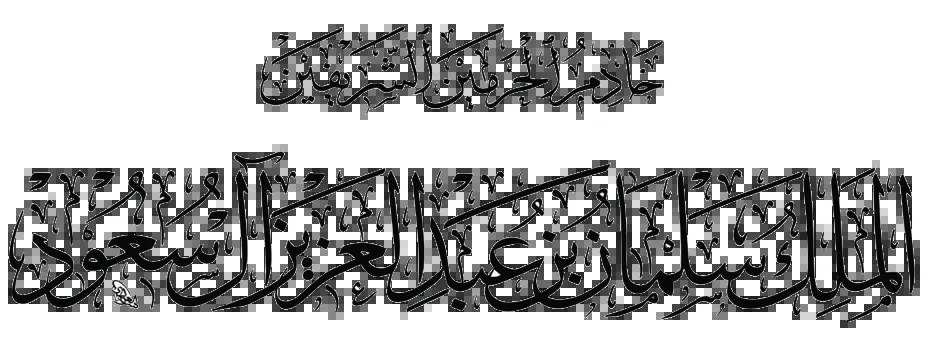 خادم الحرمين الشريفين
الملك سلمان بن عبد العزيز آل سعود